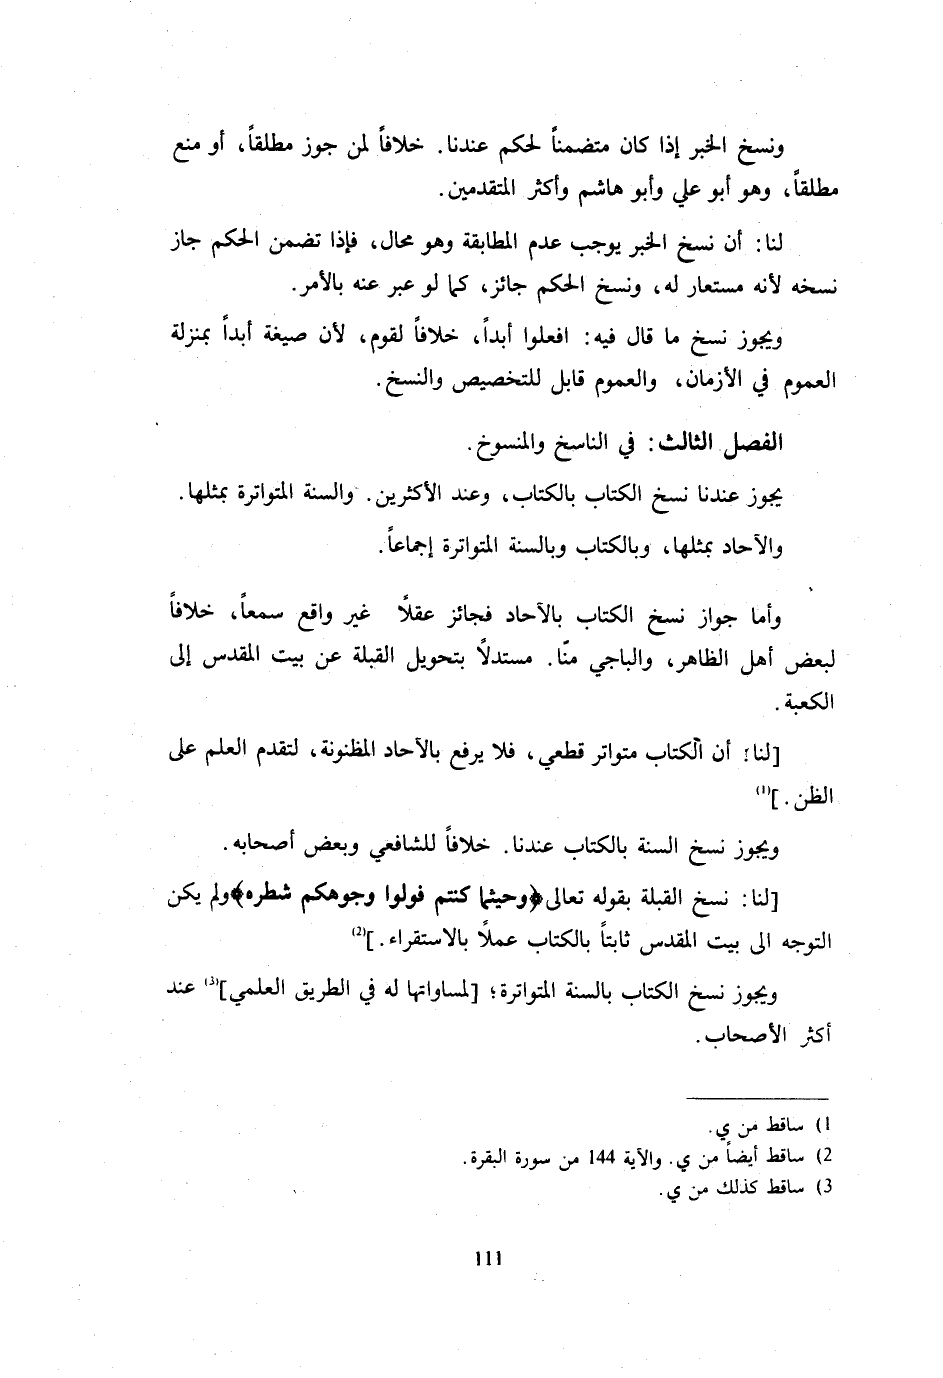 ونسخ الخبر إذا كان متضمناً لحكم عندنا. خلافاً لمن جوز مطلقاً، أو منع
مطلقاً، وهو أبو علي وأبو هاشم وأكثر المتقدمين.
لنا: أن نسخ الخبر يوجب عدم المطابقة وهو محال، فإذا تضمن الحكم جاز
نسخه لأنه مستعار له، ونسخ الحكم جائز، كما لو عبر عنه بالأمر.
ويجوز نسخ ما قال فيه: افعلوا أبداً، خلافاً لقوم، لأن صيغة أبداً بمنزلة
العموم في الأزمان، والعموم قابل للتخصيص والنسخ.
الفصل الثالث: في الناسخ والمنسوخ.
يجوز عندنا نسخ الكتاب بالكتاب، وعند الأكثرين. والسنة المتواترة بمثلها.
والآحاد بمثلها، وبالكتاب وبالسنة المتواترة إجماعاً.
وأما جواز نسخ الكتاب بالآحاد فجائز عقلًا غير واقع سمعاً، خلافاً
لبعض أهل الظاهر، والباجي منّا. مستدلًا بتحويل القبلة عن بيت المقدس إلى
الكعبة.
[لنا: أن الكتاب متواتر قطعي، فلا يرفع بالآحاد المظنونة، لتقدم العلم على
الظن.](1)
ويجوز نسخ السنة بالكتاب عندنا. خلافاً للشافعي وبعض أصحابه.
[لنا: نسخ القبلة بقوله تعالى ﴿وحيثما كنتم فولوا وجوهكم شطره﴾ ولم يكن
التوجه الى بيت المقدس ثابتاً بالكتاب عملًا بالاستقراء.](2)
ويجوز نسخ الكتاب بالسنة المتواترة؛ [لمساواتها له في الطريق العلمي](3) عند
أكثر الأصحاب.
1) ساقط من ي.
2) ساقط أيضاً من ي. والآية 144 من سورة البقرة.
3) ساقط كذلك من ي.
111